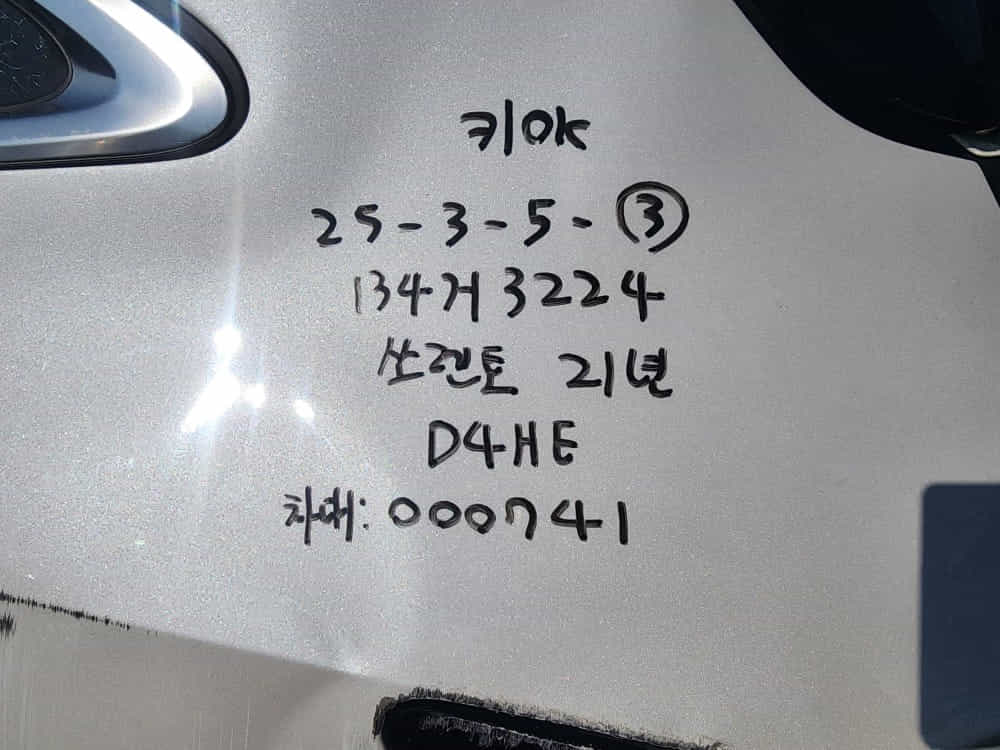 키OK
25-3-5-③
134거3224
쏘렌토 21년
D4HE
차대:000741